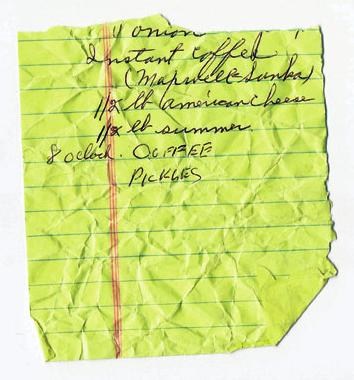 1 onion
Instant coffee
(Maxwell-Sanka)
1/2 lb american cheese
1/2 lb summer
8 oclock. COFFEE
PICKLES